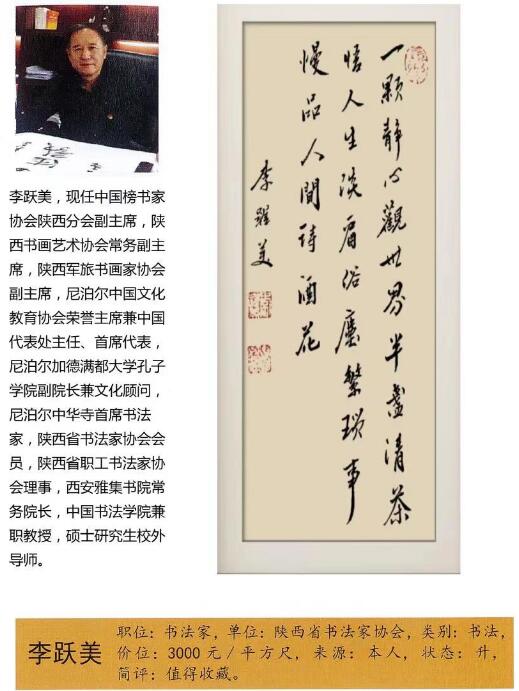 李跃美，现任中国榜书家
协会陕西分会副主席，陕
西书画艺术协会常务副主
席，陕西军旅书画家协会
副主席，尼泊尔中国文化
教育协会荣誉主席兼中国
代表处主任、首席代表，
尼泊尔加德满都大学孔子
学院副院长兼文化顾问，
尼泊尔中华寺首席书法
家，陕西省书法家协会会
员，陕西省职工书法家协
会理事，西安雅集书院常
务院长，中国书法学院兼
职教授，硕士研究生校外
导师。
一颗静心觀世界半盞清茶
悟人生淡看俗塵繁瑣事
慢品人間詩酒花
李躍美
李跃美
职位：书法家，单位：陕西省书法家协会，类别：书法，
价位：3000元/平方尺，来源：本人，状态：升，
简评：值得收藏。